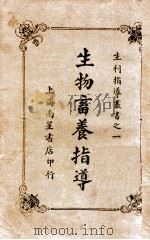 生利指導叢書之一
生物畜養指導
上海南星書店印行